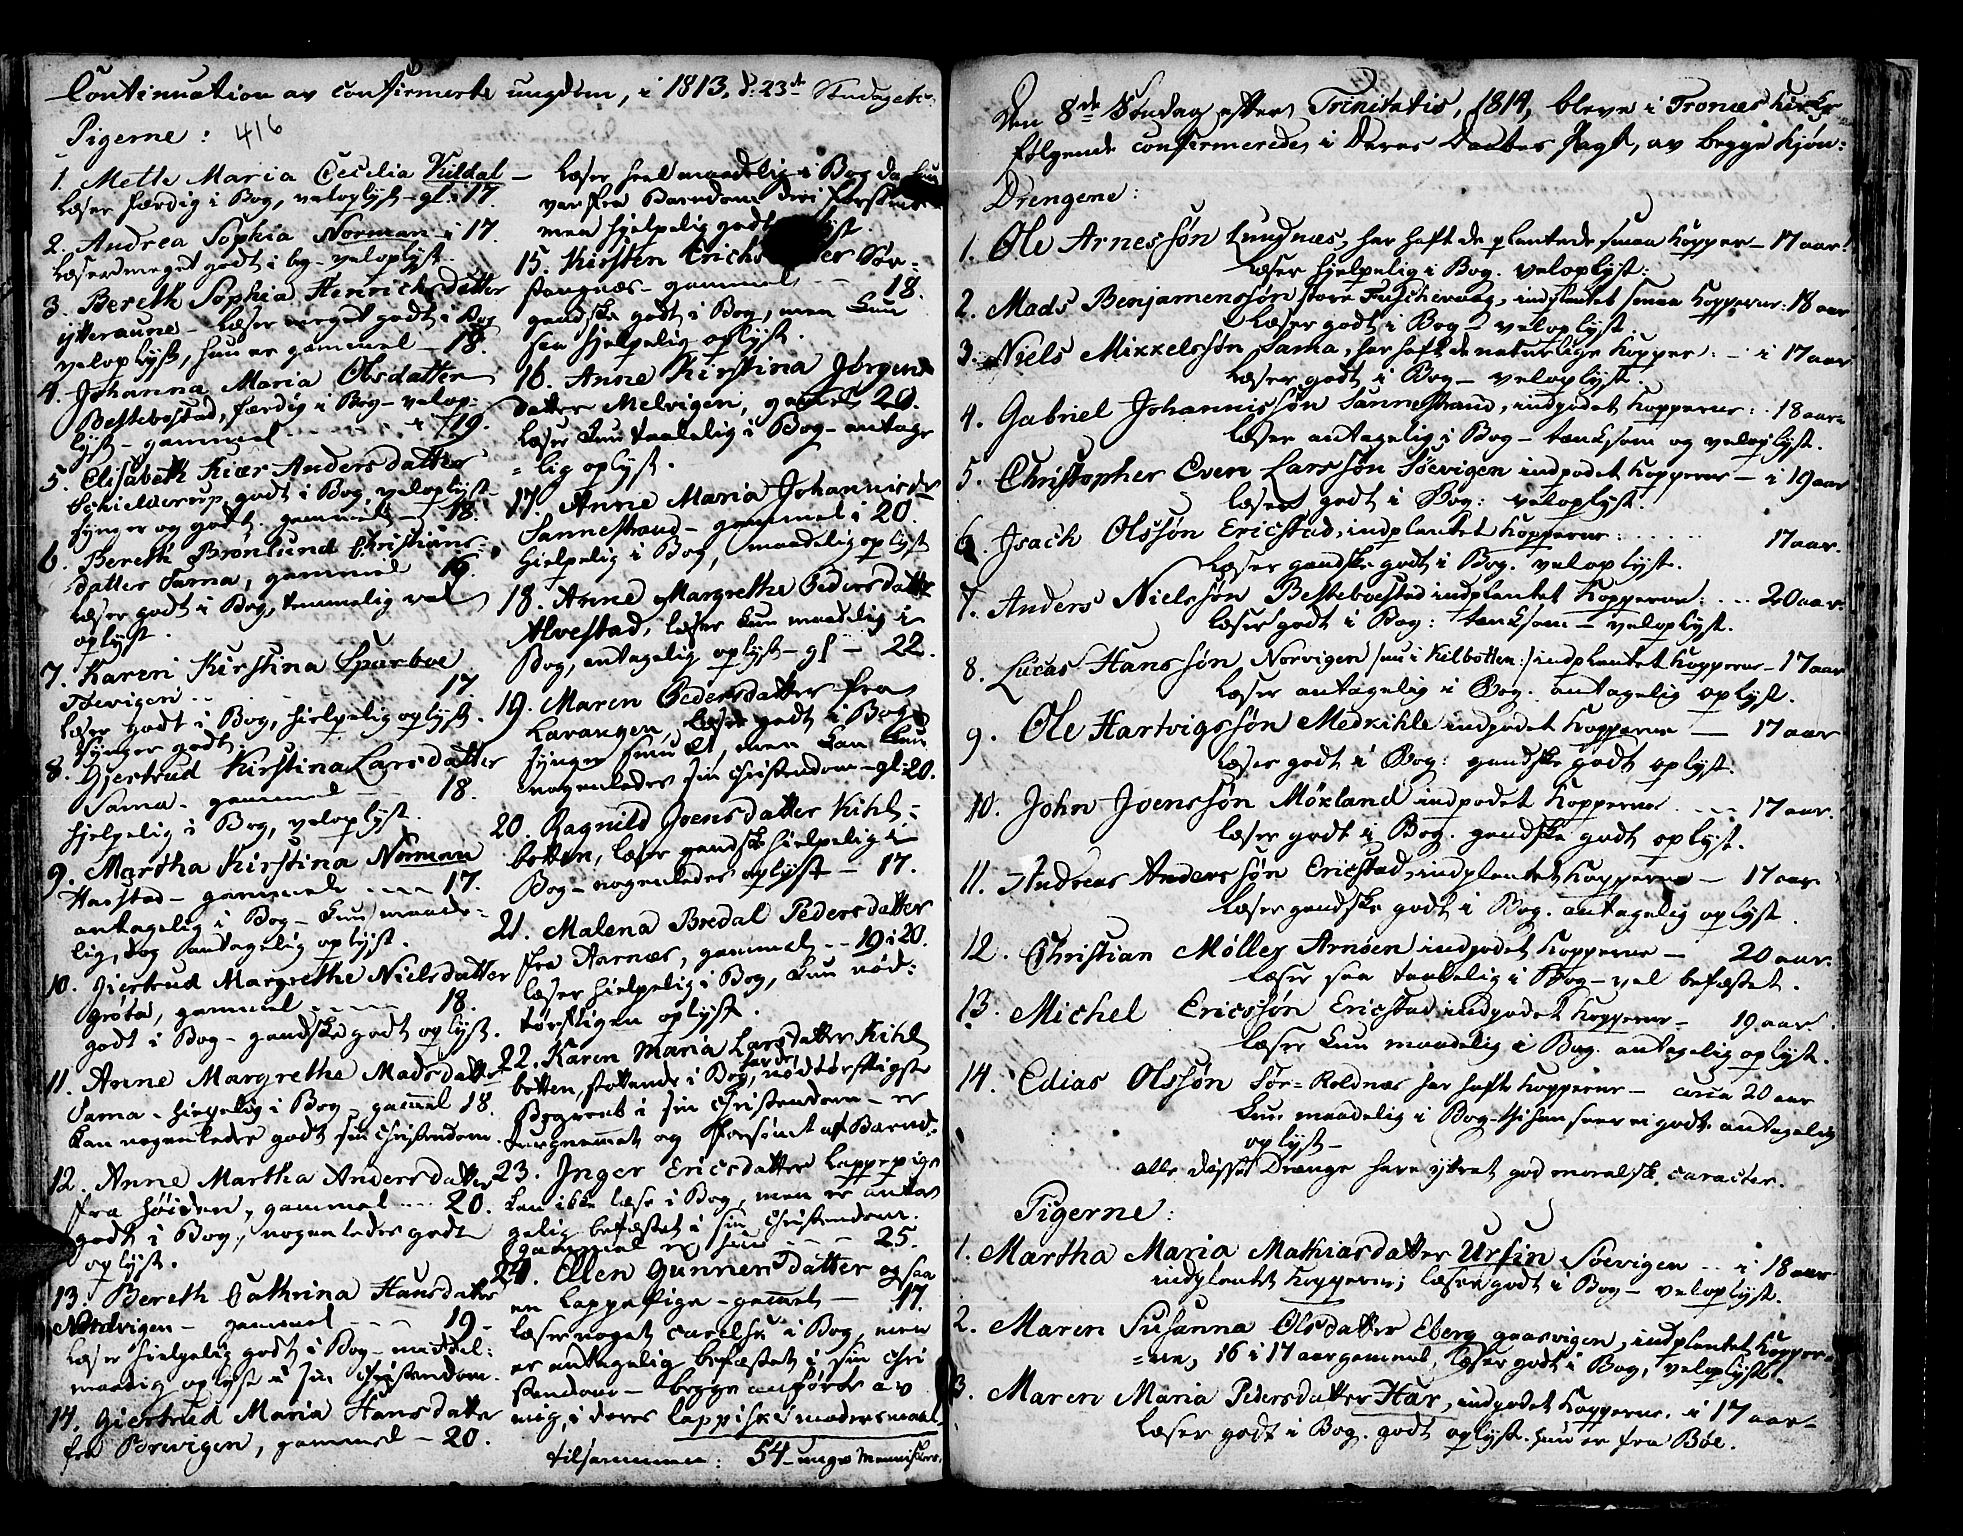 Continuation av confirmerte ungdom, i 1813, d: 23de Søndag etc.
Pigerne: 416
1. Mette Maria Cecilia Kildal
læser færdig i Bog, veloplyst – gl: 17.
2. Andrea Sophia Norman i 17.
læser meget godt i bog – veloplyst.
3. Bereth Sophia Henrichsdatter
ytteraune – læser meget godt i Bog
veloplyst, hun er gammel – 18.
4. Johanna Maria Olsdatter
Bestebostad, færdig i Bog – velop-
lyst – gammel – 19.
5. Elisabeth Kiær Andersdatter
Schielderup, godt i Bog, veloplyst –
synger og godt. gammel – 18.
6. Bereth Brønlund Christians-
datter Sama, gammel 19.
læser godt i Bog, temmelig vel
oplyst.
7. Karen Kirstina Sparboe
Tøevigen 17.
læser godt i Bog, hielpelig oplyst.
synger godt.
8. Gjertrud Kirstina Larsdatter
Sama – gammel 18.
hjelpelig i Bog, veloplyst.
9. Martha Kirstina Norman
Harstad – gammel 17.
antagelig i Bog – kun maade-
lig, dog antagelig oplyst.
10. Gjertrud Margrethe Nielsdatter
grøta, gammel 18.
godt i Bog – gandske godt oplyst.
11. Anne Margrethe Madsdatter
Sama – hielpelig i Bog – gammel 18.
kan nogenledes godt sin christendom.
12. Anne Martha Andersdatter
fra høiden, gammel 20.
godt i Bog, nogenledes godt
oplyst.
13. Bereth Cathrina Hansdatter
Nordvigen – gammel 19.
læser hielpelig godt i Bog – middel-
maadig oplyst i sin christendom.
14. Giertrud Maria Hansdatter
fra Brevigen, gammel – 20.
– læser heel maadelig i Bog da hun
var fra Barndom
men hjelpelig godt
15. Kirsten Erichs ter Sør-
gammel 18.
gandske godt i Bog, men kun
saa hjelpelig oplyst.
16. Anne Kirstina Jørgens
datter Melvigen, gammel 20.
læser kun taalelig i Bog – antage
= lig oplyst.
17. Anne Maria Johannisdr
Sannestrand – gammel i 20.
hjelpelig i Bog, maadelig oplyst
18. Anne Margrethe Pedersdatter
Alvestad, læser kun maadelig i
Bog, antagelig oplyst – gl – 22.
19. Maren Pedersdatter fra
Lavangen, læser godt i Bog
synger smukt, men kan kun
nogenledes sin christendom – gl: 20.
20. Ragnild Joensdatter Kihl-
botten, læser gandske hielpelig i
Bog – nogenledes oplyst – 17.
21. Malena Bredal Pedersdatter
fra Aarnæs, gammel – 19 i 20.
læser hielpelig i Bog, kun nød-
tørftigen oplyst.
22. Karen Maria Larsdatter Kihl
botten, stottende i Bog, har de nødtørftigste
Begreeb i sin christendom – er
tungnemmet og forsømt af Barnd:
23. Inger Ericsdatter Lappepige
kan ikke læse i Bog, men er anta
gelig befæstet i sin christendom.
gammel er hun 25.
24. Ellen Gunnersdatter ogsaa
en Lappepige – gammel – 17.
læser noget i Bog, men
er antagelig befæstet i sin chri
stendom – begge anførte av
mig, i deres lappiske modersmaal.
tilsammen: 54 – unge Mennisker.
Den 8de Søndag efter Trinitatis, 1814, bleve i Tronæs Kirke
følgende confirmerede i Deres Daabes Pagt, av begge Kjøn:
Drengene:
1. Ole Arnessøn Lundnæs, har haft de plantede smaa Kopper – 17 aar.
læser hjelpelig i Bog. veloplyst.
2. Mads Benjamenssøn store Fuschevaag, indplantet smaa Kopperne: 18 aar
læser godt i Bog – veloplyst.
3. Niels Mikkelssøn Sama, har haft de naturlige Kopper: – i 17 aar
læser godt i Bog – veloplyst.
4. Gabriel Johannissøn Sannestrand, indpodet Kopperne: 18 aar
læser antagelig i Bog – tænksom og veloplyst.
5. Christopher Even Larssøn Søevigen indpodet Kopperne – i 19 aar
læser godt i Bog: veloplyst.
6. Isach Olssøn Ericstad, indplantet Kopperne: 17 aar.
læser gandske godt i Bog. veloplyst.
7. Anders Nielssøn Bestebostad indplantet Kopperne: 20 aar
læser godt i Bog: tænksom – veloplyst.
8. Lucas Hanssøn Norvigen /nu i Kilbotten:/ indplantet Kopperne – 17 aar
læser antagelig i Bog. antagelig oplyst.
9. Ole Hartvigssøn Medkihle indpodet Kopperne – 17 aar
læser godt i Bog: gandske godt oplyst.
10. John Joenssøn Møkland indpodet Kopperne 17 aar.
læser godt i Bog. gandske godt oplyst.
11. Andreas Anderssøn Ericstad, indplantet Kopperne – 17 aar
læser gandske godt i Bog. antagelig oplyst.
12. Christian Møller Arnsen indpodet Kopperne – 20 aar.
læser saa taalelig i Bog – vel befæstet.
13. Michel Ericssøn Ericstad indpodet Kopperne – 19 aar
læser kun maadelig i Bog. antagelig oplyst.
14. Edias Olssøn Sør-Roldnæs har hafte Kopperne – circa 20 aar
kun maadelig i Bog – thi han seer ei godt – antagelig
oplyst –
alle disse Drænge have ytret god moralsk caracter.
Pigerne:
1. Martha Maria Mathiasdatter Ursin Søevigen – i 18 aar
indplantet Kopperne; læser godt i Bog – veloplyst.
2. Maren Susanna Olsdatter Eberg gaasvigen, indplantet Kopper-
= ne, 16 i 17 aar gammel, læser godt i Bog, veloplyst.
3. Maren Maria Pedersdatter Hår, indpodet Kopperne. i 17 aar –
læser godt i Bog. godt oplyst. hun er fra Bøe.